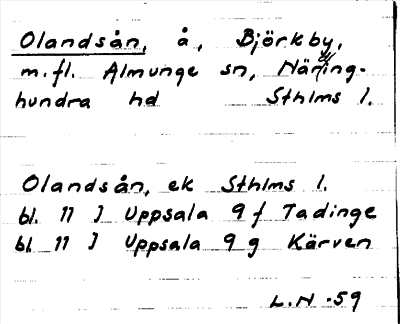 Olandsån, å, Björkby,
m.fl. Almunge sn, Näring-
hundra hd Sthlms l.
Olandsån, ek Sthlms l.
bl. 11 J Uppsala 9 f Tadinge
bl 11 J Uppsala 9 g Kärven
L.N -59